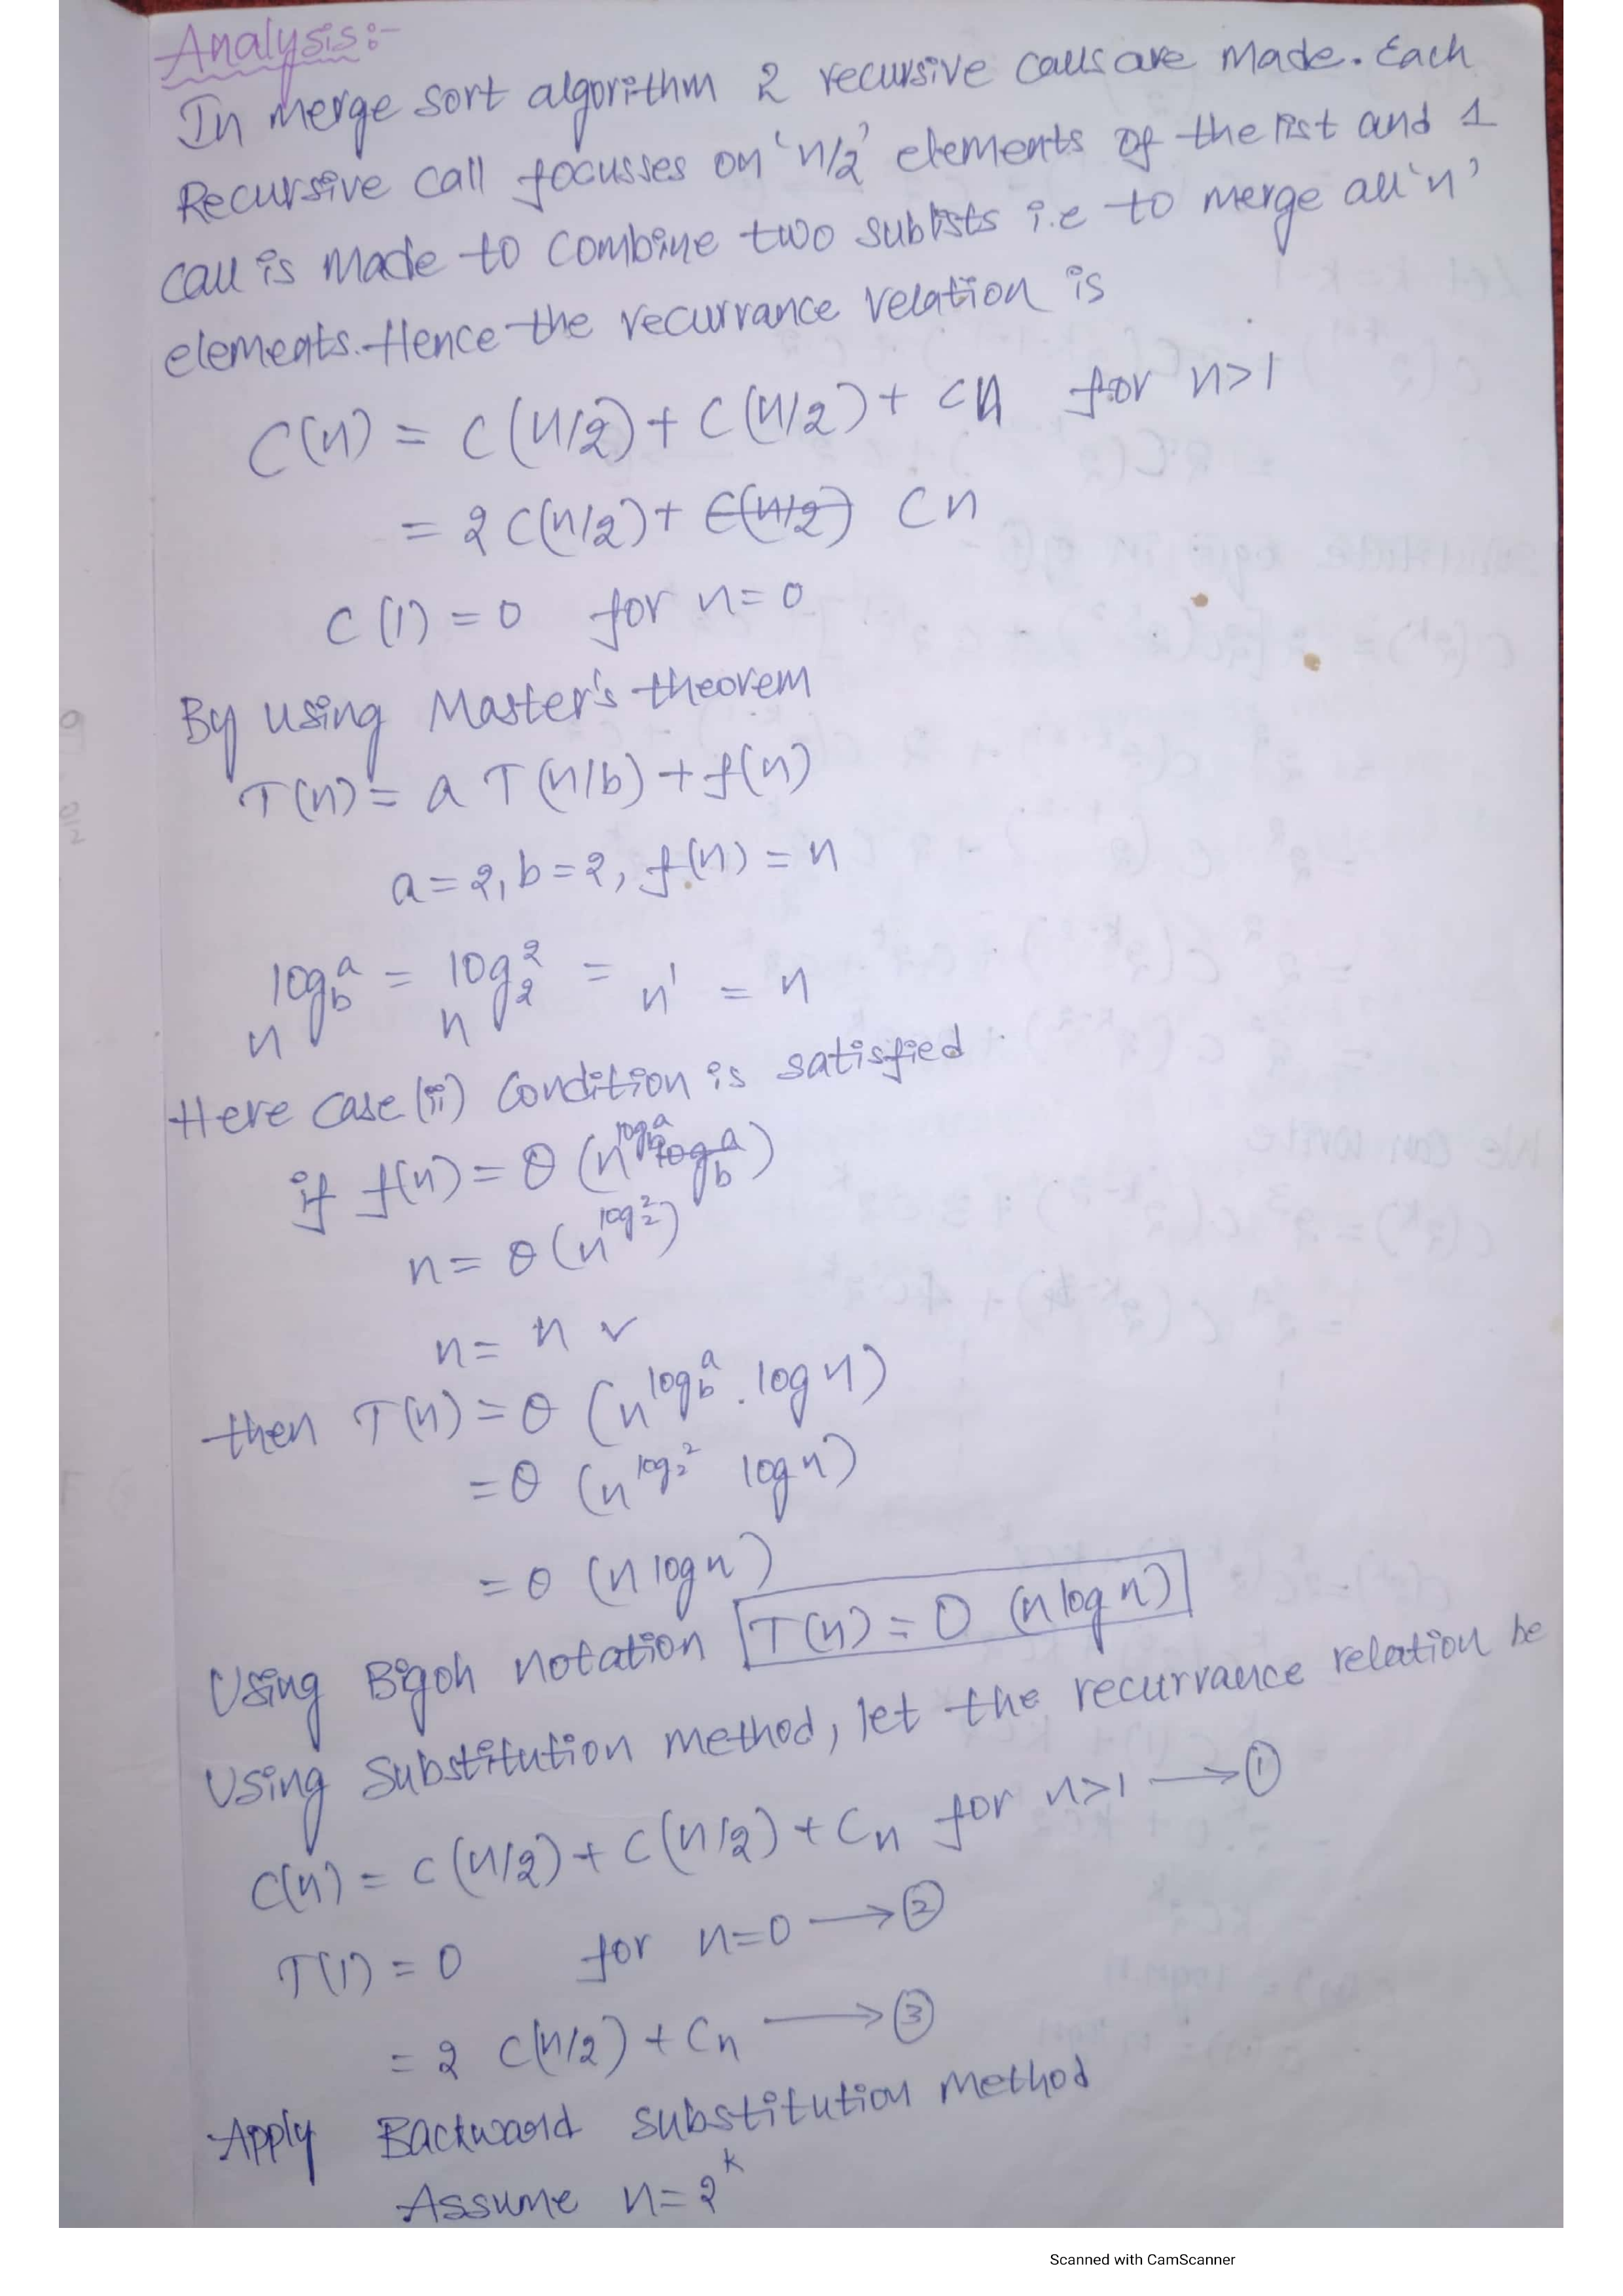 Analysis:-
In merge sort algorithm 2 recursive calls are made. Each
Recursive call focusses on 'n/2' elements of the list and 1
call is made to combine two sublists i.e to merge all 'n'
elements. Hence the recurrance relation is
C(n) = C(n/2) + C(n/2) + cn for n>1
= 2 C(n/2) + C(n/2) Cn
C(1) = 0 for n=0
By using Master's theorem
T(n) = a T(n/b) + f(n)
a=2, b=2, f(n) = n
n^log_b^a = n^log_2^2 = n^1 = n
Here case (ii) Condition is satisfied
if f(n) = θ (n^log_b^a log_b^a)
n = θ (n^log_2^2)
n = n ✓
then T(n) = θ (n^log_b^a . log n)
= θ (n^log_2^2 log n)
= θ (n log n)
Using Bigoh notation T(n) = O (n log n)
Using Substitution method, let the recurrance relation be
C(n) = C(n/2) + C(n/2) + Cn for n>1 → ①
T(1) = 0 for n=0 → ②
= 2 C(n/2) + Cn → ③
Apply Backward substitution method
Assume n=2^k
Scanned with CamScanner